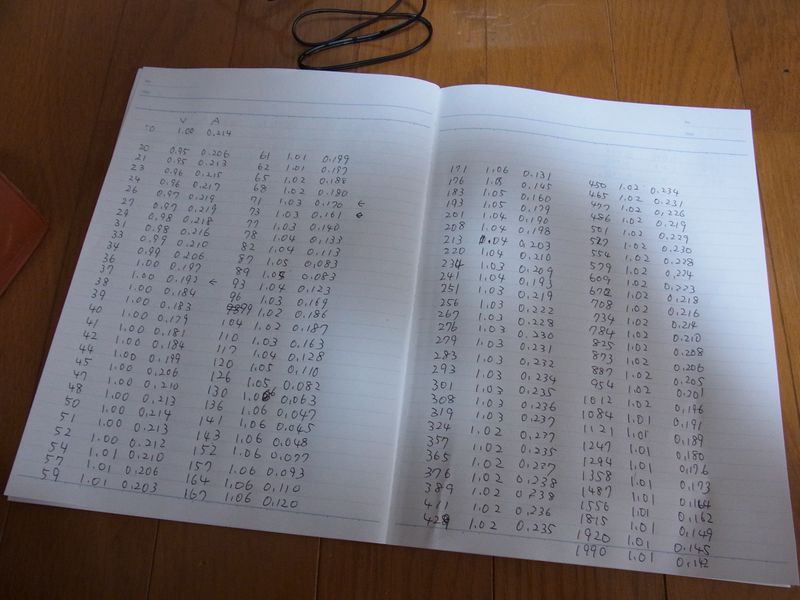 V A
10 1.00 0.214
20 0.95 0.206
21 0.95 0.213
23 0.96 0.215
24 0.96 0.217
26 0.97 0.219
27 0.97 0.219
29 0.98 0.218
31 0.98 0.216
33 0.99 0.210
34 0.99 0.206
36 1.00 0.197
37 1.00 0.192 ←
38 1.00 0.184
39 1.00 0.183
40 1.00 0.179
41 1.00 0.181
42 1.00 0.184
44 1.00 0.199
45 1.00 0.206
47 1.00 0.210
48 1.00 0.213
50 1.00 0.214
51 1.00 0.213
52 1.00 0.212
54 1.01 0.210
57 1.01 0.206
59 1.01 0.203
61 1.01 0.199
62 1.01 0.197
65 1.02 0.188
68 1.02 0.180
71 1.03 0.170 ←
73 1.03 0.161 ←
77 1.03 0.140
78 1.04 0.133
82 1.04 0.113
87 1.05 0.083
89 1.05 0.083
93 1.04 0.123
96 1.03 0.169
99 1.02 0.186
104 1.02 0.187
110 1.03 0.163
117 1.04 0.128
120 1.05 0.110
126 1.05 0.082
130 1.06 0.063
136 1.06 0.047
141 1.06 0.045
143 1.06 0.048
152 1.06 0.077
157 1.06 0.093
164 1.06 0.110
167 1.06 0.120
171 1.06 0.131
176 1.05 0.145
183 1.05 0.160
193 1.05 0.179
201 1.04 0.190
208 1.04 0.198
213 1.04 0.203
220 1.04 0.210
234 1.03 0.209
241 1.04 0.193
251 1.03 0.219
256 1.03 0.222
267 1.03 0.228
276 1.03 0.230
279 1.03 0.231
283 1.03 0.232
293 1.03 0.234
301 1.03 0.235
308 1.03 0.236
319 1.03 0.237
324 1.02 0.237
357 1.02 0.235
365 1.02 0.237
376 1.02 0.238
389 1.02 0.238
411 1.02 0.236
429 1.02 0.235
450 1.02 0.234
465 1.02 0.231
477 1.02 0.226
486 1.02 0.219
501 1.02 0.229
527 1.02 0.230
554 1.02 0.228
579 1.02 0.224
609 1.02 0.223
672 1.02 0.218
708 1.02 0.216
734 1.02 0.214
784 1.02 0.210
825 1.02 0.208
873 1.02 0.206
887 1.02 0.205
954 1.02 0.201
1012 1.02 0.196
1084 1.01 0.191
1121 1.01 0.189
1247 1.01 0.180
1294 1.01 0.176
1358 1.01 0.173
1487 1.01 0.164
1556 1.01 0.162
1815 1.01 0.149
1920 1.01 0.145
1990 1.01 0.142